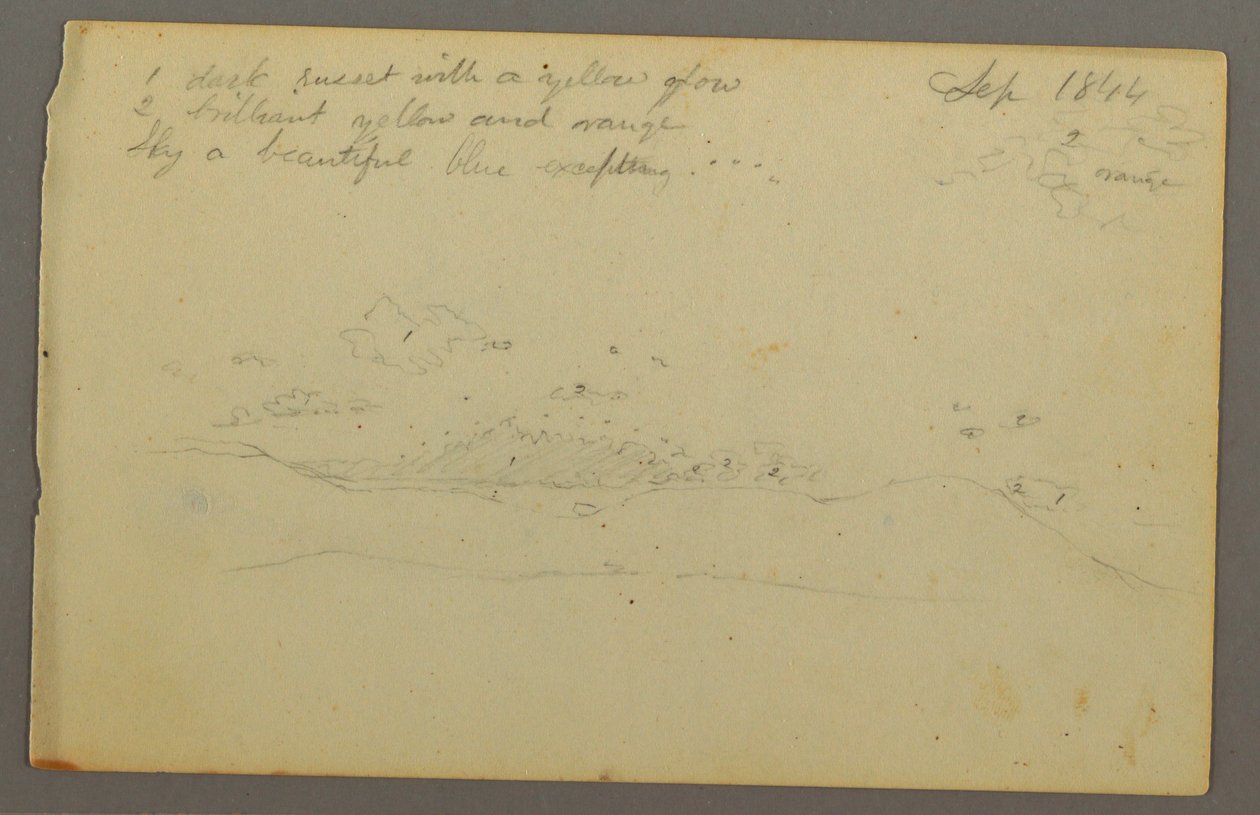 1 dark russet with a yellow glow
2 brilliant yellow and orange
Sky a beautiful blue excepting . " " "
Sep 1844
2
orange
1
2
1
1
2 2 2
2 1